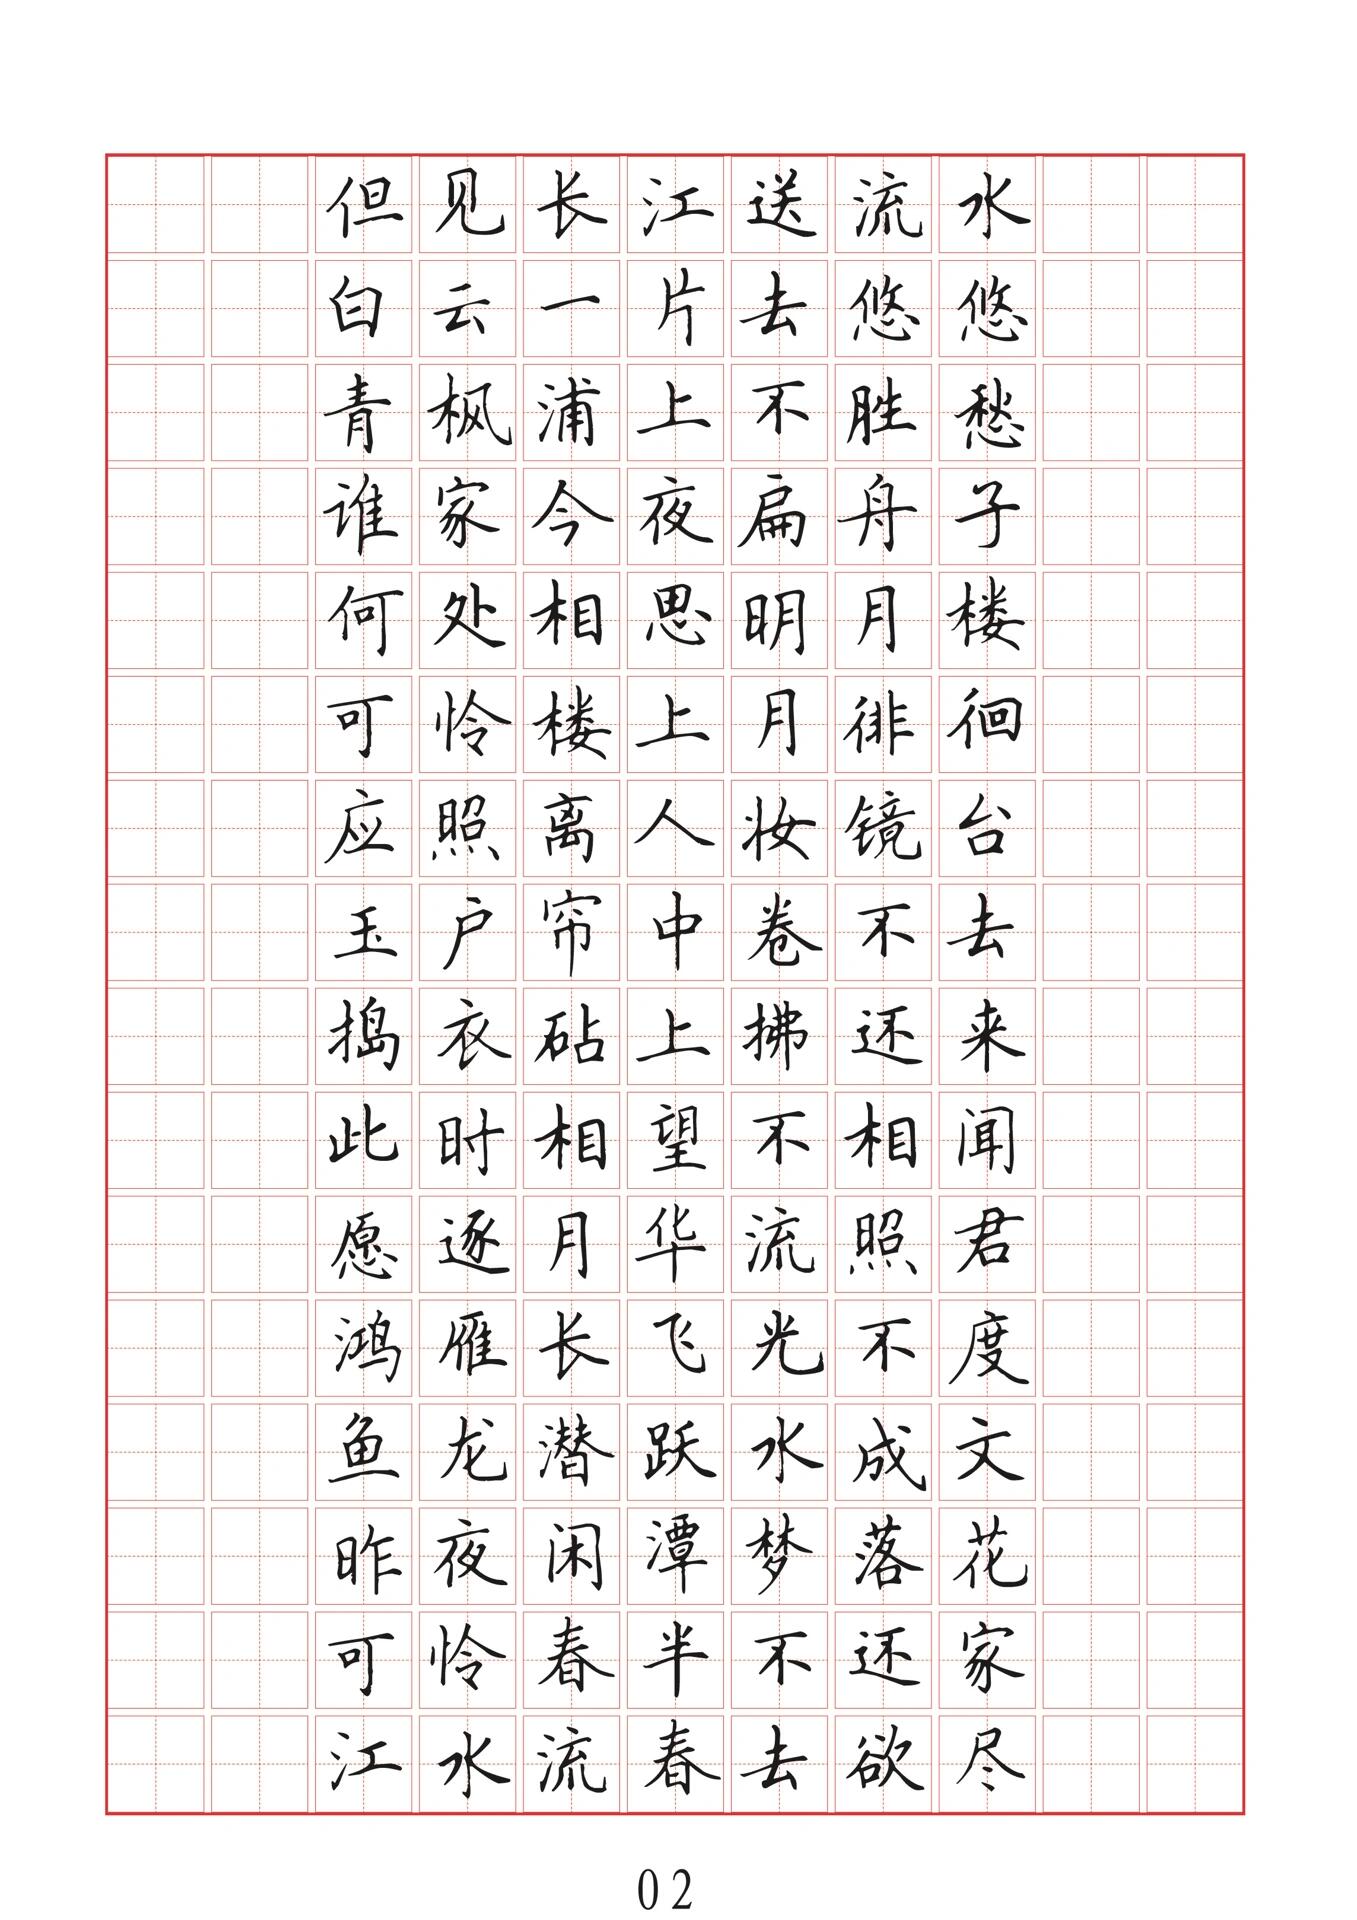 但见长江送流水
白云一片去悠悠
青枫浦上不胜愁
谁家今夜扁舟子
何处相思明月楼
可怜楼上月徘徊
应照离人妆镜台
玉户帘中卷不去
捣衣砧上拂还来
此时相望不相闻
愿逐月华流照君
鸿雁长飞光不度
鱼龙潜跃水成文
昨夜闲潭梦落花
可怜春半不还家
江水流春去欲尽
02